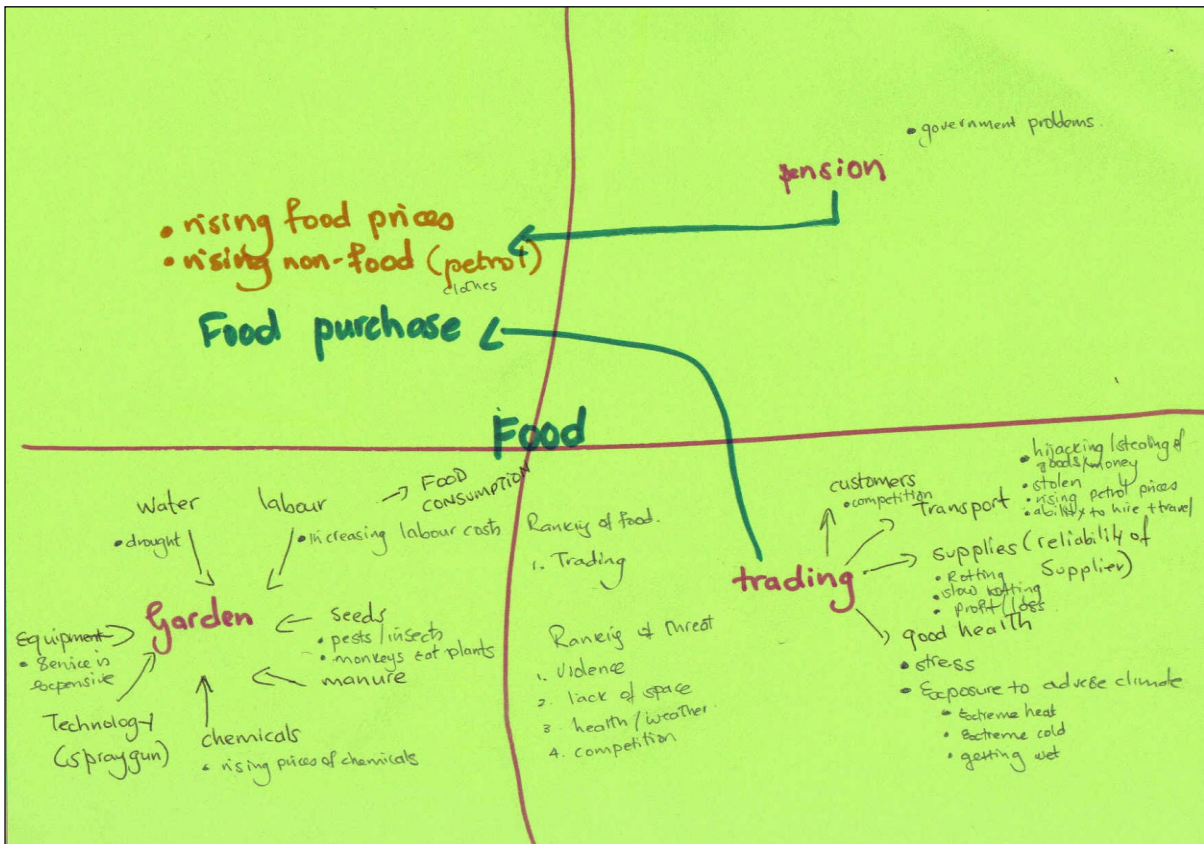 • government problems.
pension
• rising food prices
• rising non-food (petrol)
clothes
Food purchase
Food
Water
• drought
labour
• increasing labour costs
→ FOOD
CONSUMPTION
Garden
Equipment
• Service is
expensive
Technology
(spraygun)
chemicals
• rising prices of chemicals
seeds
• pests/insects
• monkeys eat plants
manure
Ranking of food.
1. Trading
Ranking of threat
1. violence
2. lack of space
3. health/weather.
4. competition
trading
customers
• competition
Transport
• hijacking/stealing of
goods/money
• stolen
• rising petrol prices
• ability to hire + travel
supplies (reliability of
Supplier)
• Rotting
• slow rotting
• profit/loss
good health
• stress
• Exposure to advese climate
• Extreme heat
• Extreme cold
• getting wet